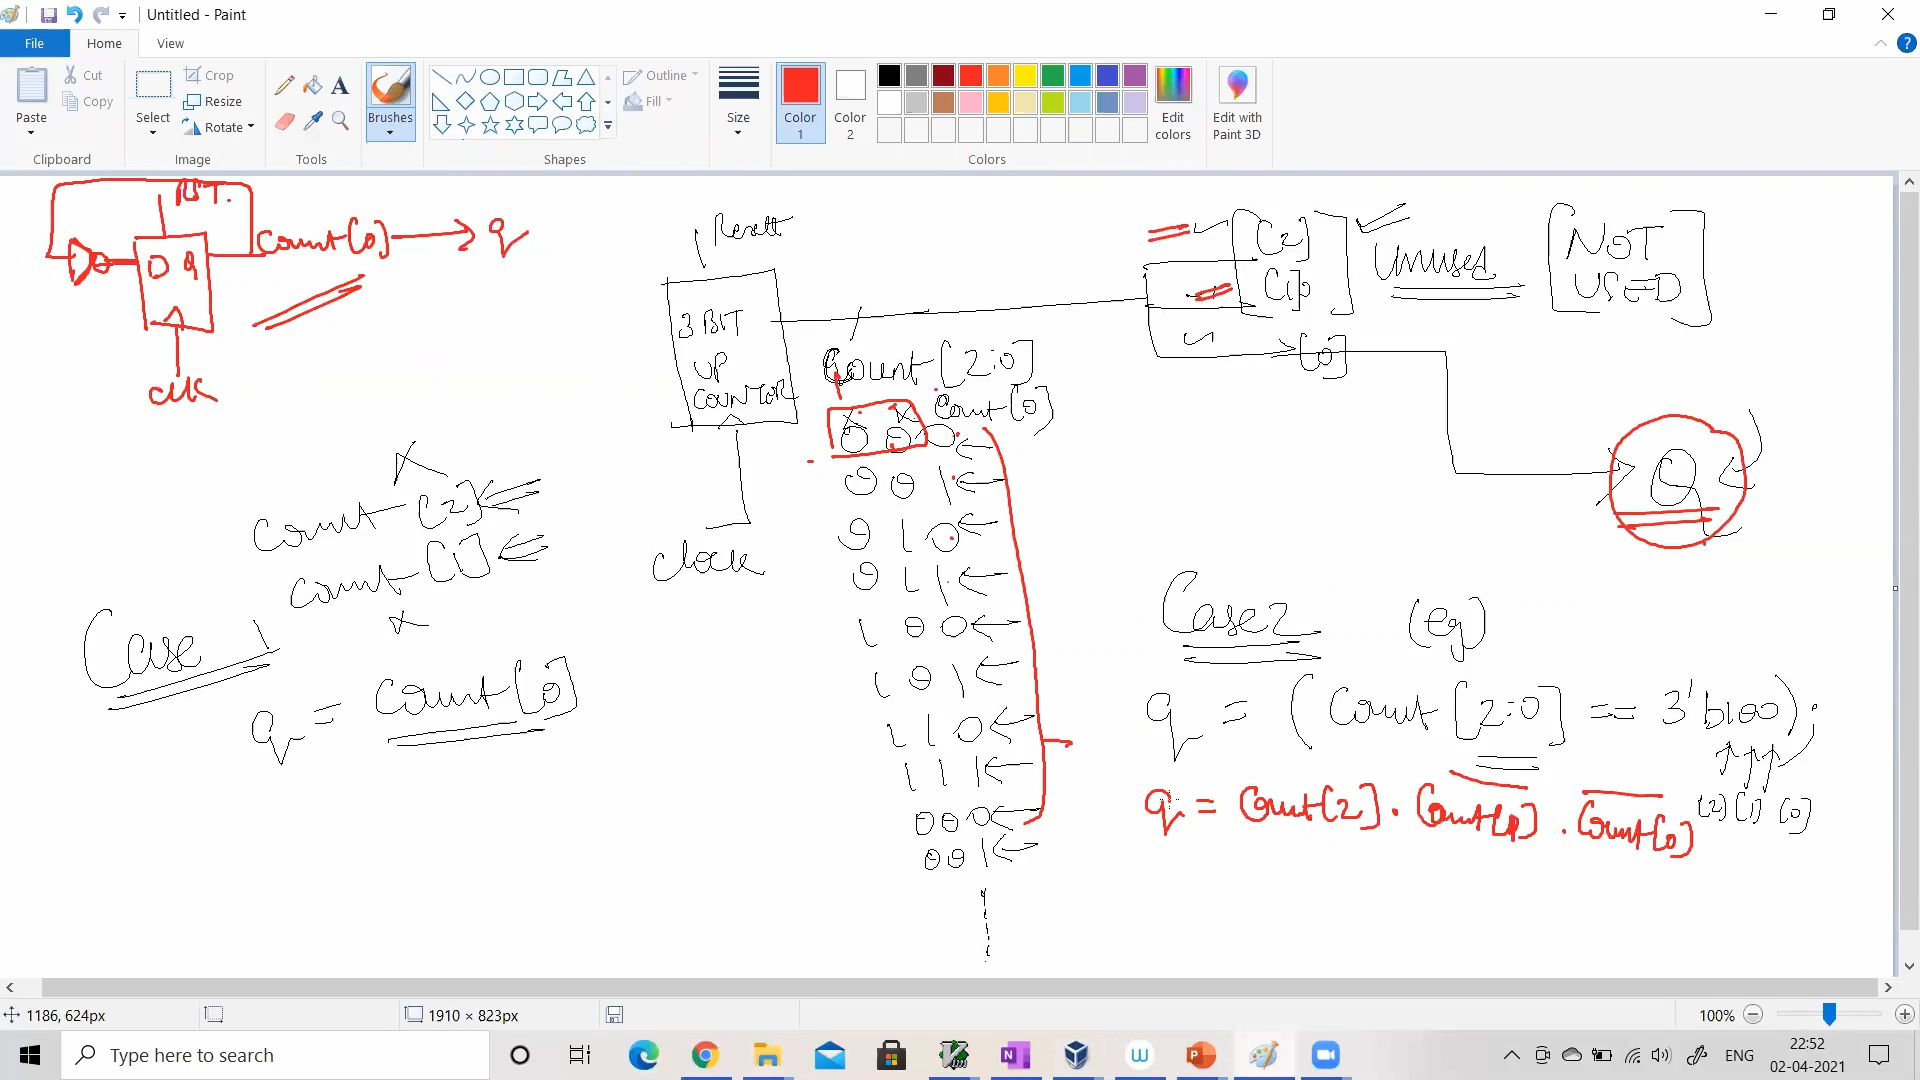 Untitled - Paint
File
Home
View
Paste
Cut
Copy
Clipboard
Select
Crop
Resize
Rotate
Image
Tools
Brushes
Shapes
Outline
Fill
Size
Color 1
Color 2
Colors
Edit colors
Edit with Paint 3D
RST.
D Q
count[0]
q
clk
Reset
3 BIT
UP
COUNTOR
Clock
Count [2:0]
Count [0]
0 0 0
0 0 1
0 1 0
0 1 1
1 0 0
1 0 1
1 1 0
1 1 1
0 0 0
0 0 1
[2]
[1]
[0]
Unused
[NOT
USED]
Q
x
count [2]
count [1]
x
Case 1
q = count[0]
Case2 (eg)
q = (Count [2:0] == 3'b100);
[2] [1] [0]
q = Count[2] . Count[1] . Count[0]
1186, 624px
1910 × 823px
100%
Type here to search
ENG
22:52
02-04-2021